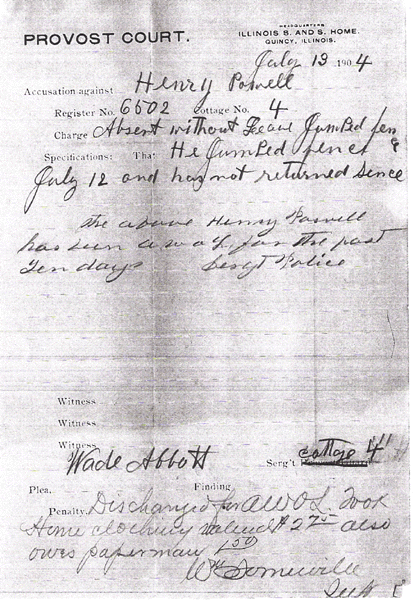 HEADQUARTERS
PROVOST COURT. ILLINOIS S. AND S. HOME.
QUINCY, ILLINOIS.
July 13 1904
Accusation against Henry Powell
Register No. 6502 Cottage No. 4
Charge Absent without Leave Jumped fen
Specifications: That He Jumped fence
July 12 and has not returned Sence
the above Henry Powell
has been a.w.o.l. for the past
Ten days Sergt Police
Witness
Witness
Witness
Wade Abbott Serg't cottge 4
Plea. Finding
Penalty. Discharged for AWOL. Took
Home clothing valued $2 75 also
owes paperman 1.50
Wm Somerville
Supt